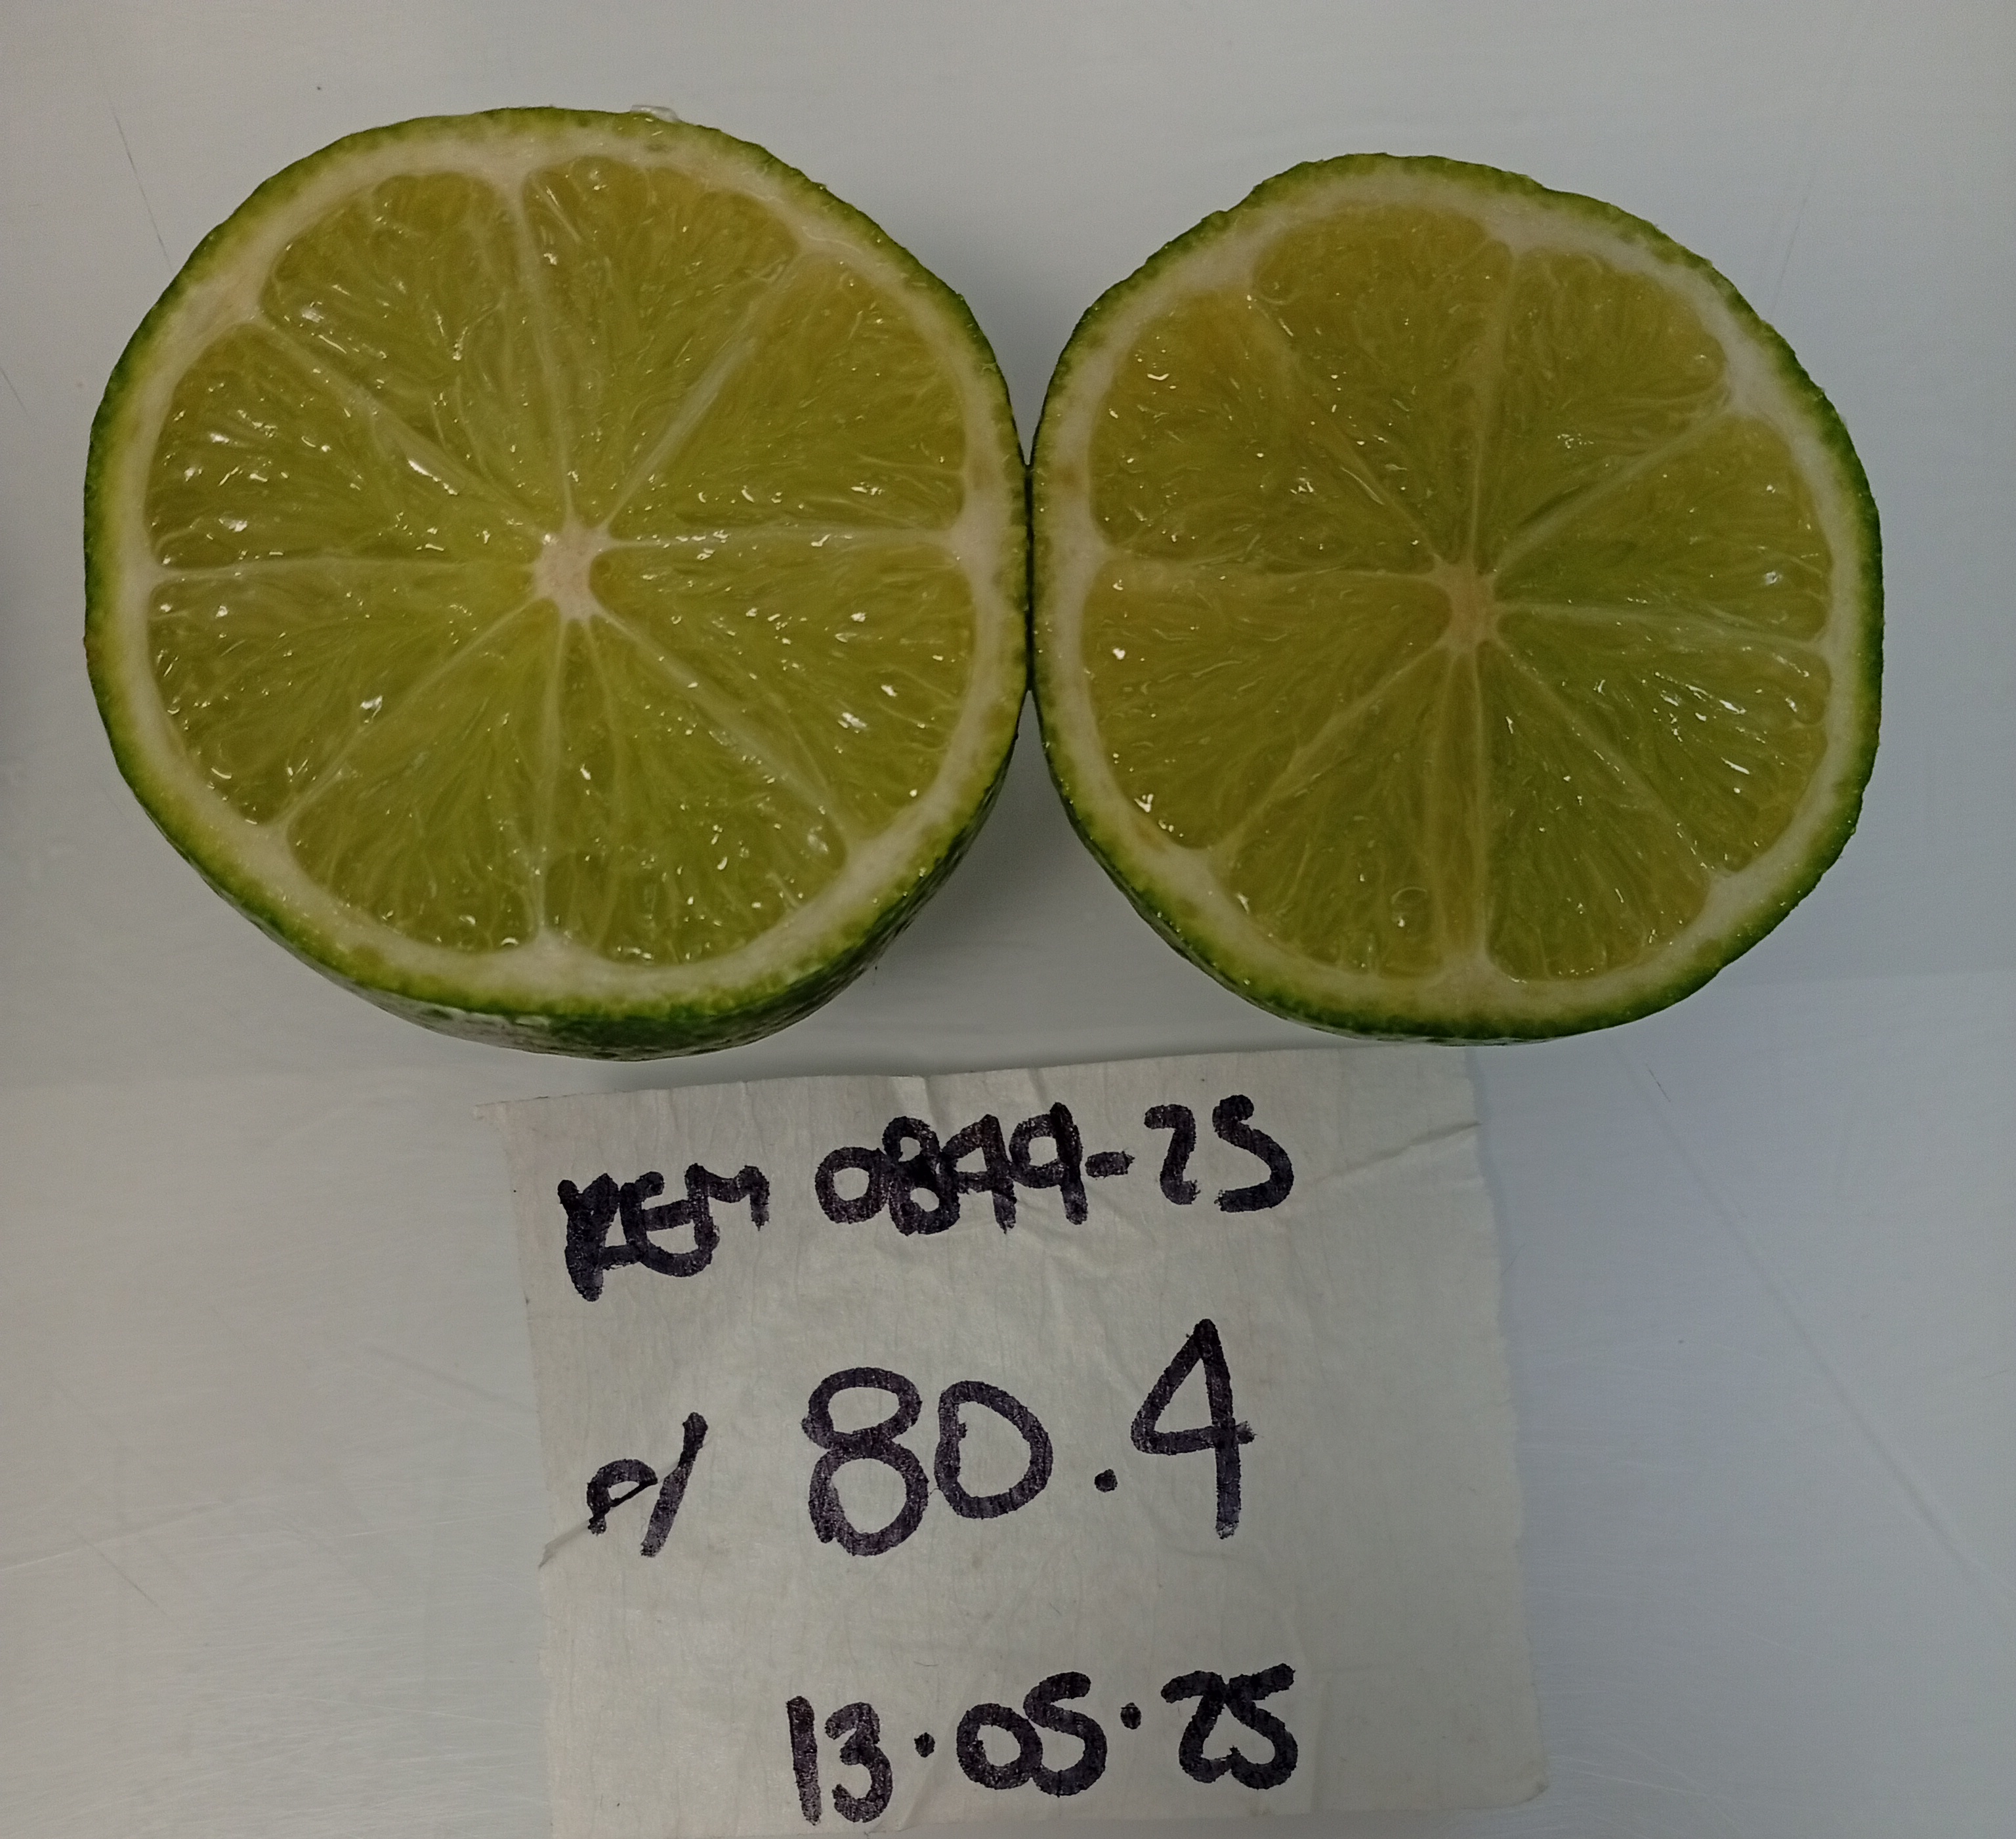 REM 0899-25
P/ 80.4
13.05.25